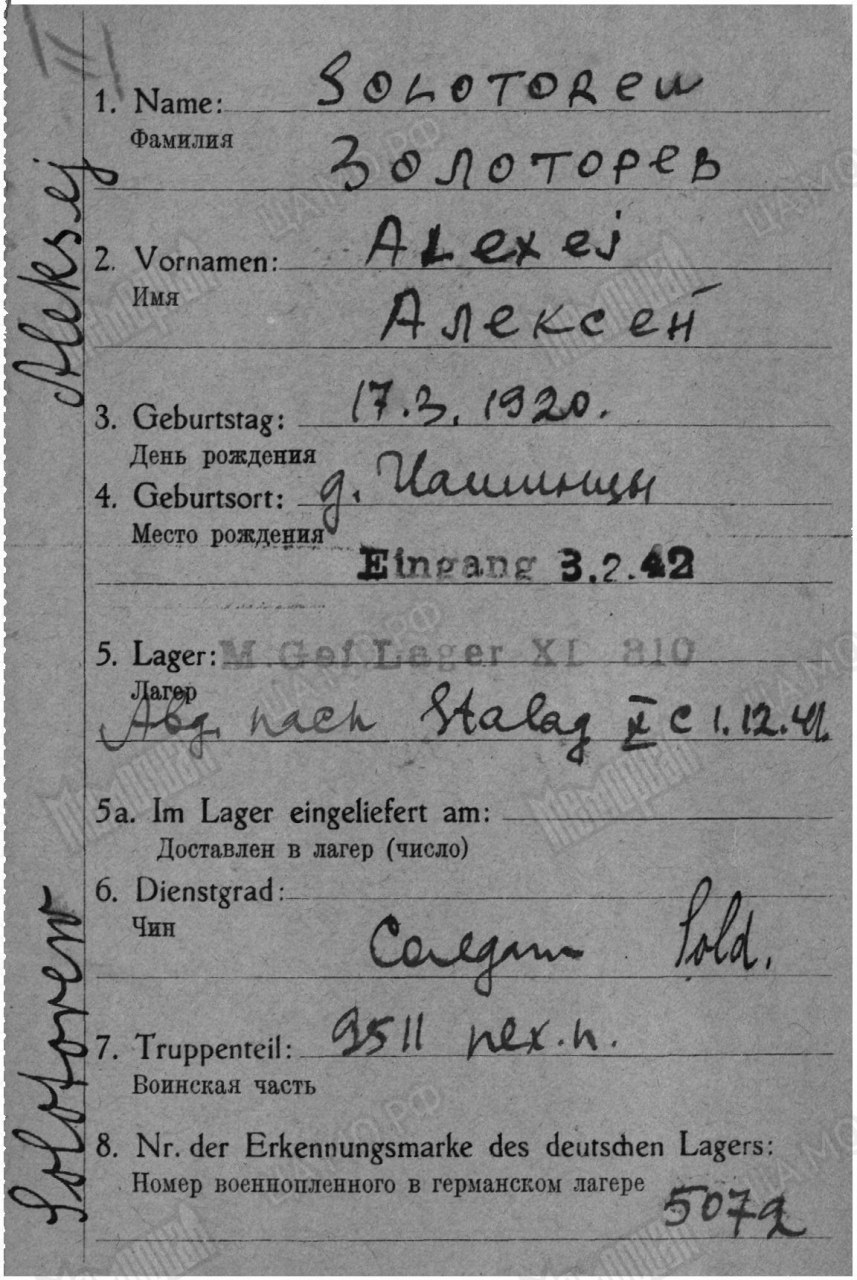 Aleksej
Solotorew
1. Name: SOLOTOReW
Фамилия
Золоторев
2. Vornamen: ALexej
Имя
Алексей
3. Geburtstag: 17.3.1920.
День рождения
4. Geburtsort: д.
Место рождения
Eingang 3.2.42
5. Lager: M.Gef Lager XI 310
Лагер
Abg. nach Stalag X C 1.12.41.
5a. Im Lager eingeliefert am:
Доставлен в лагер (число)
6. Dienstgrad:
Чин
Солдат Sold.
7. Truppenteil: 9511
Воинская часть
8. Nr. der Erkennungsmarke des deutschen Lagers:
Номер военнопленного в германском лагере
5072
ЦАМО.РФ
Мемориал